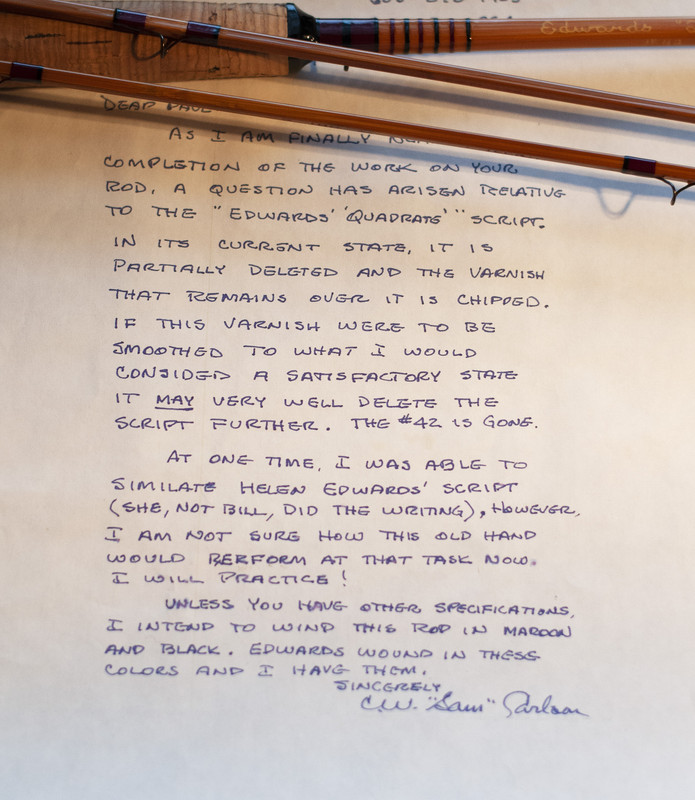 Edwards
DEAR PAUL
AS I AM FINALLY
COMPLETION OF THE WORK ON YOUR
ROD, A QUESTION HAS ARISEN RELATIVE
TO THE "EDWARDS' 'QUADRATE'" SCRIPT.
IN ITS CURRENT STATE, IT IS
PARTIALLY DELETED AND THE VARNISH
THAT REMAINS OVER IT IS CHIPPED.
IF THIS VARNISH WERE TO BE
SMOOTHED TO WHAT I WOULD
CONSIDED A SATISFACTORY STATE
IT MAY VERY WELL DELETE THE
SCRIPT FURTHER. THE #42 IS GONE.
AT ONE TIME, I WAS ABLE TO
SIMILATE HELEN EDWARDS' SCRIPT
(SHE, NOT BILL, DID THE WRITING), HOWEVER,
I AM NOT SURE HOW THIS OLD HAND
WOULD PERFORM AT THAT TASK NOW.
I WILL PRACTICE!
UNLESS YOU HAVE OTHER SPECIFICATIONS,
I INTEND TO WIND THIS ROD IN MAROON
AND BLACK. EDWARDS WOUND IN THESE
COLORS AND I HAVE THEM.
SINCERELY
C.W. "Sam" Carlson